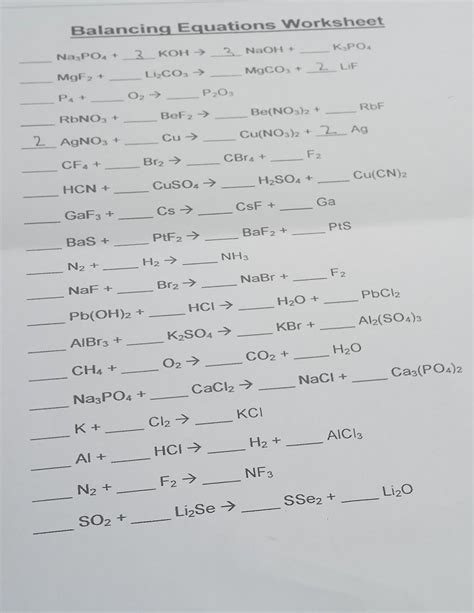 Balancing Equations Worksheet
____ Na₃PO₄ + 3 KOH → 3 NaOH + ____ K₃PO₄
____ MgF₂ + ____ Li₂CO₃ → ____ MgCO₃ + 2 LiF
____ P₄ + ____ O₂ → ____ P₂O₃
____ RbNO₃ + ____ BeF₂ → ____ Be(NO₃)₂ + ____ RbF
2 AgNO₃ + ____ Cu → ____ Cu(NO₃)₂ + 2 Ag
____ CF₄ + ____ Br₂ → ____ CBr₄ + ____ F₂
____ HCN + ____ CuSO₄ → ____ H₂SO₄ + ____ Cu(CN)₂
____ GaF₃ + ____ Cs → ____ CsF + ____ Ga
____ BaS + ____ PtF₂ → ____ BaF₂ + ____ PtS
____ N₂ + ____ H₂ → ____ NH₃
____ NaF + ____ Br₂ → ____ NaBr + ____ F₂
____ Pb(OH)₂ + ____ HCl → ____ H₂O + ____ PbCl₂
____ AlBr₃ + ____ K₂SO₄ → ____ KBr + ____ Al₂(SO₄)₃
____ CH₄ + ____ O₂ → ____ CO₂ + ____ H₂O
____ Na₃PO₄ + ____ CaCl₂ → ____ NaCl + ____ Ca₃(PO₄)₂
____ K + ____ Cl₂ → ____ KCl
____ Al + ____ HCl → ____ H₂ + ____ AlCl₃
____ N₂ + ____ F₂ → ____ NF₃
____ SO₂ + ____ Li₂Se → ____ SSe₂ + ____ Li₂O